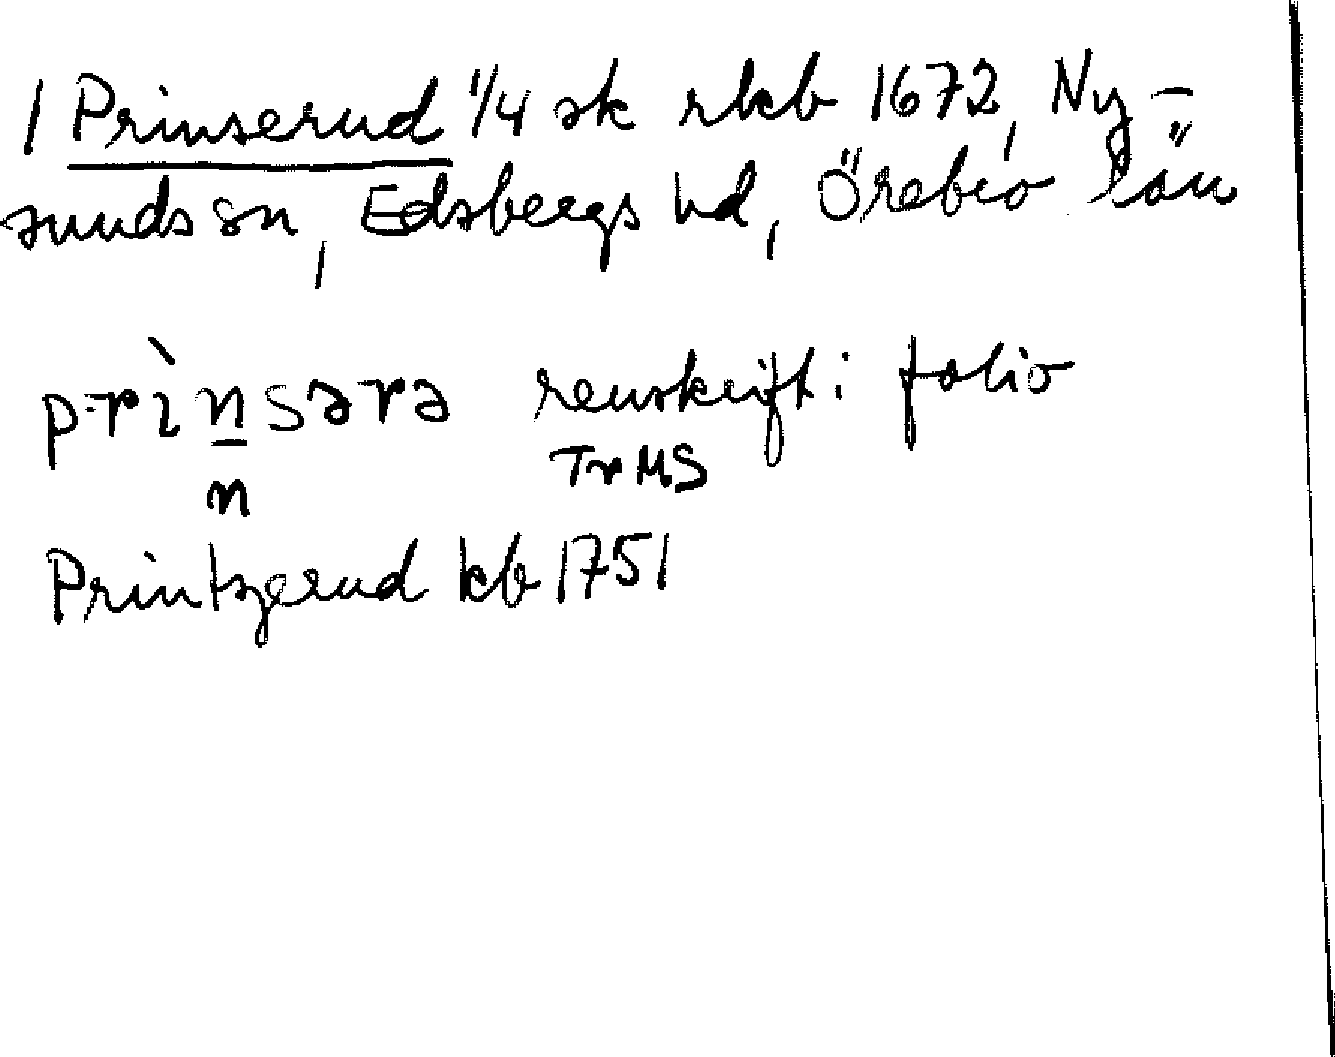 / Prinserud 1/4 sk rkb 1672, Ny-
sunds sn, Edsbergs hd, Örebro län
prìnsərə renskrift i folio
n TrMS
Printzerud kb 1751